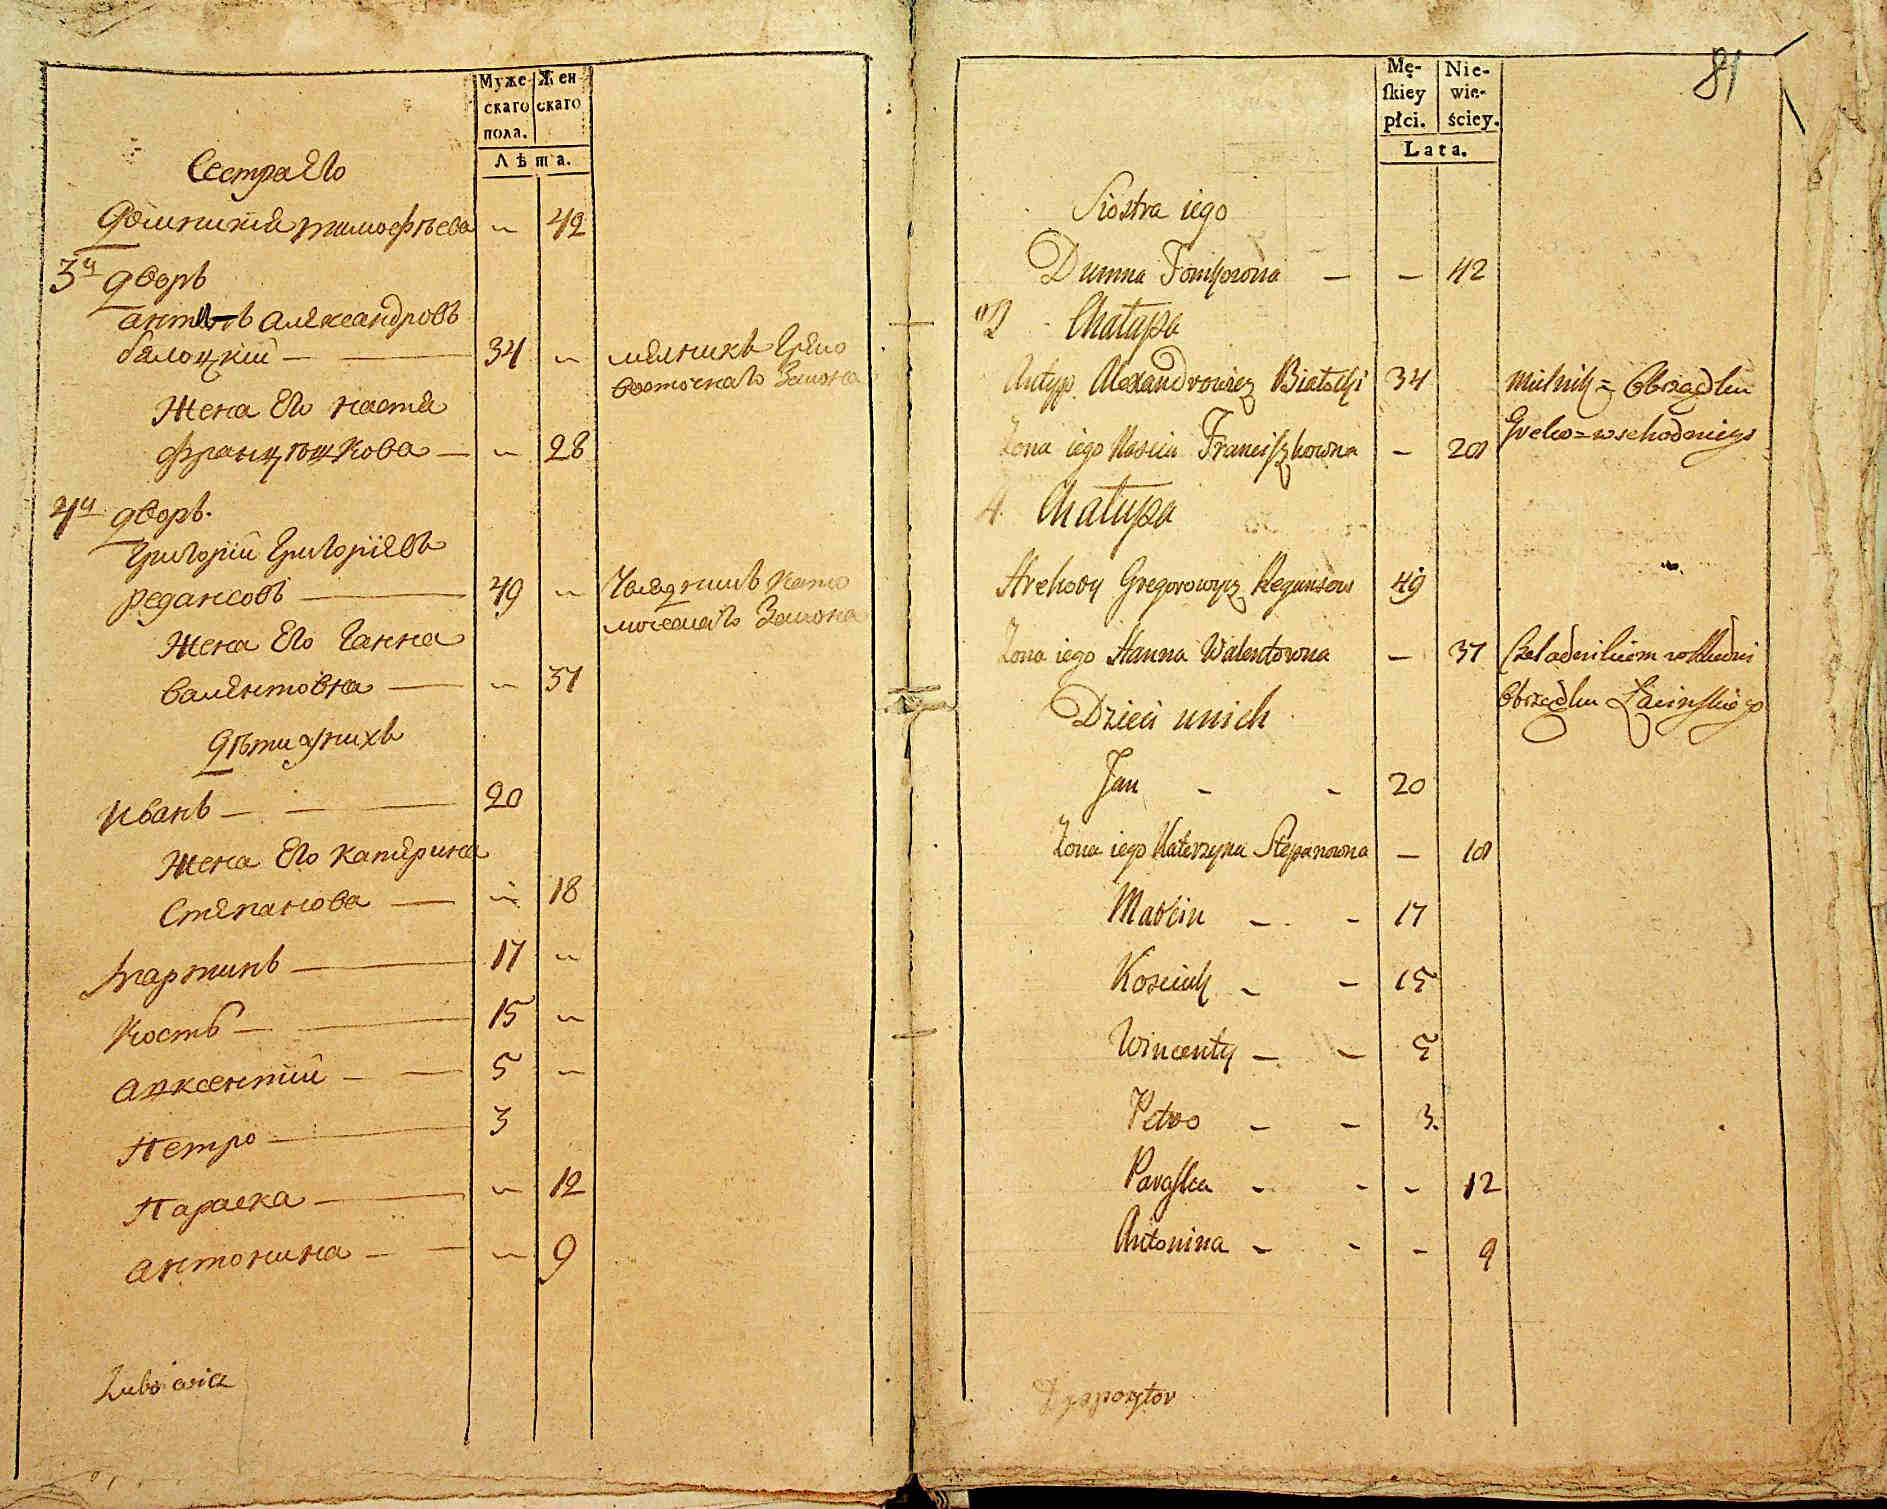 Муже-
скаго
пола.
Жен
скаго
Лѣта.
Сестра Его
Домникія тимофѣева ~ 42
3й дворъ
Александровъ
бялоцкій — — 34 ~
мелникъ Греко
восточнаго Закона
Жена Его настя
францѣшкова — ~ 28
4й дворъ.
Григорій Григоріевъ
редансовъ — 49 ~
Челядникъ Като
лическаго Закона
Жена Его Ганна
валентовна — ~ 37
Дѣти унихъ
иванъ — — — 20
Жена Его катерина
Степанова — ~ 18
мартинъ — 17 ~
Кость — — 15 ~
ауксентій — — 5 ~
Петро — 3
Параска — ~ 12
антонина — — ~ 9
81
Mę-
skiey
płci.
Nie-
wie-
ściey.
Lata.
Siostra iego
Dumna — — 42
3 Chałupa
Antyp Alexandrowicz Białocki 34
Mielnik = Obrządku
Greko=wschodniego
Zona iego Nascia Franciszkowna — 28
4. Chałupa
Hrehory Gregorowicz Regansow 49
Zona iego Hanna Walentowna — 37
Czeladnikiem
Obrządku Łacinskiego
Dzieci unich
Jan - - 20
Zona iego Katerzyna Stepanowna — 18
Marcin - - 17
Kosciuk - - 15
Wincenty - - 5
Petro - - 3.
Paraska - - - 12
Antonina - - - 9